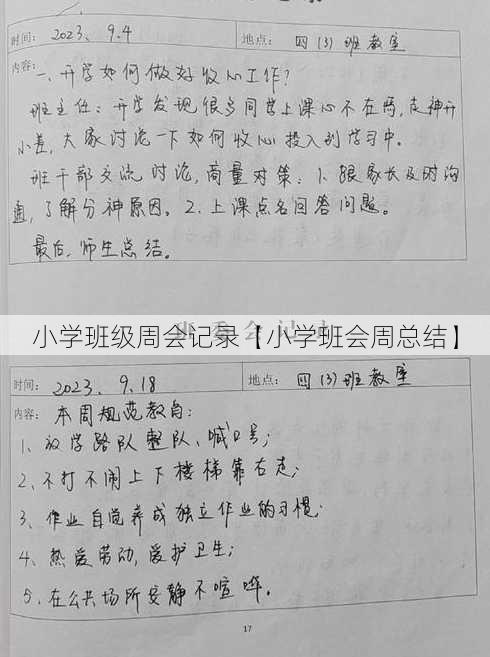 时间: 2023、9.4 地点: 四(3)班教室
内容: 一、开学如何做好收心工作?
班主任: 开学发现很多同学上课心不在焉,走神开
小差,大家讨论一下如何收心投入到学习中。
班干部交流讨论,商量对策: 1、跟家长及时沟
通,了解分神原因。2. 上课点名回答问题。
最后,师生总结。
小学班级周会记录【小学班会周总结】
时间: 2023、9.18 地点: 四(3)班教室
内容: 本周规范教育:
1、放学路队整队、喊口号;
2、不打不闹上下楼梯靠右走;
3、作业自觉养成独立作业的习惯;
4、热爱劳动,爱护卫生;
5、在公共场所安静不喧哗。
17